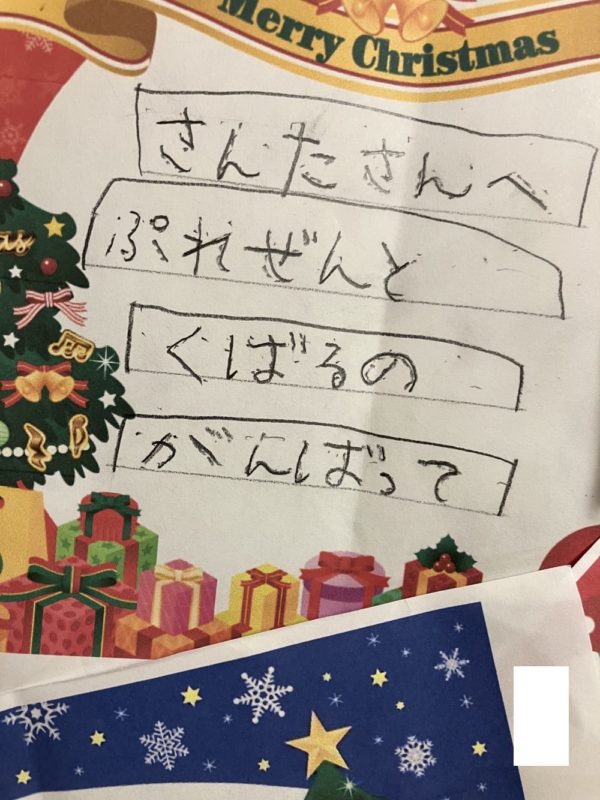 Merry Christmas
さんたさんへ
ぷれぜんと
くばるの
がんばって